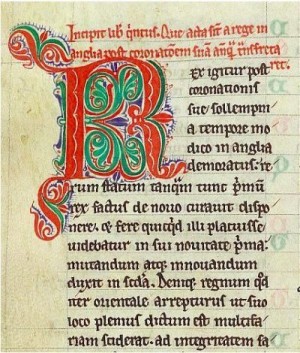 Incipit lib' Quintus. Que acta sint a rege in
anglia post coronationem suā antequā transfreta
ret.
REx igitur post
coronationis
sue sollempni
a tempore mo
dico in anglia
demoratus. re
rum statum tanquā tunc primū
rex factus de nouo curauit dispo
nere. & fere quicquid illi placuisse
uidebatur in sui nouitate prima.
mutandum atque innouandum
duxit in
Deniq; regnum
ter orientale arrepturus ut suo
loco plenius dictum est multifa
riam sciderat. ad integritatem sa